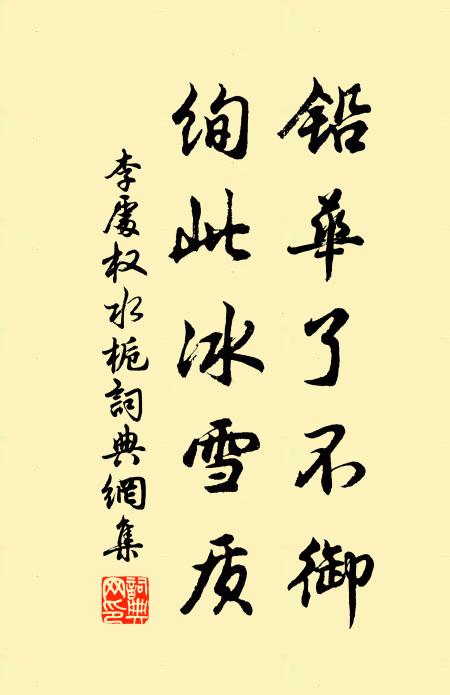 铅华了不御
绚此冰雪质
李處权水栀詞典網集
詞典网印